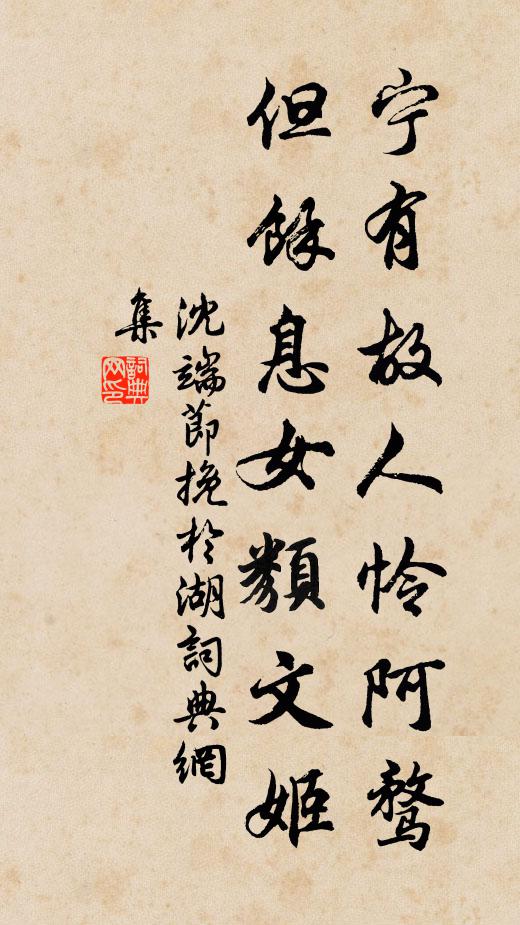 宁有故人怜阿鹜
但馀息女类文姬
沈端节挽於湖词典網
集
詞典網印